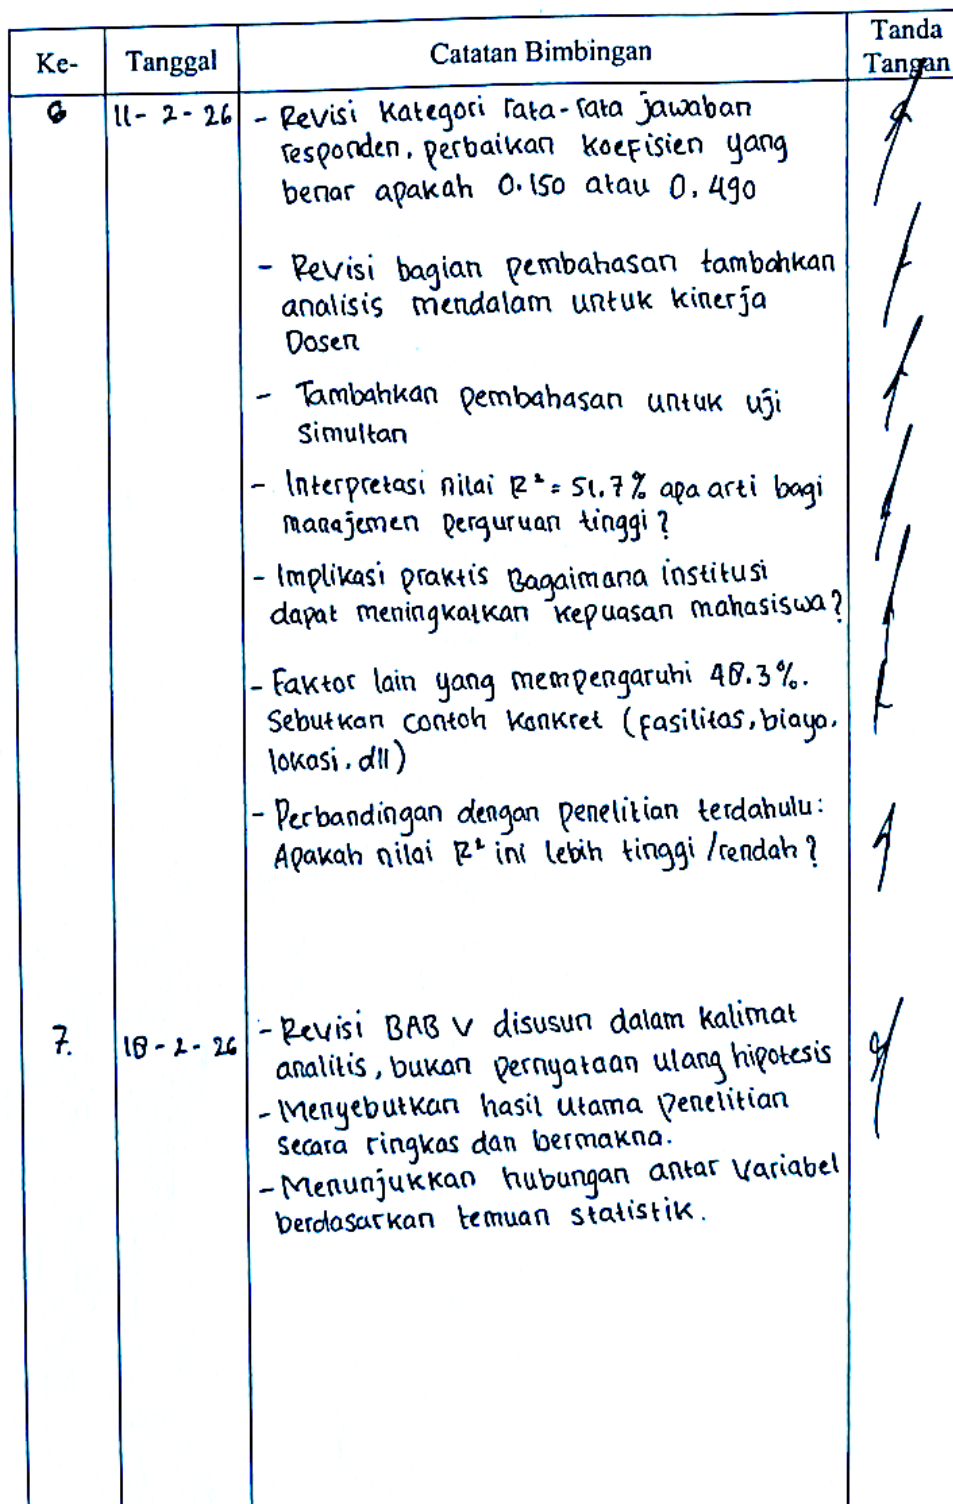 Ke- Tanggal Catatan Bimbingan Tanda Tangan
6 11-2-26 - Revisi kategori rata-rata jawaban
responden, perbaikan koefisien yang
benar apakah 0.150 atau 0,490
- Revisi bagian pembahasan tambahkan
analisis mendalam untuk kinerja
Dosen
- Tambahkan pembahasan untuk uji
simultan
- Interpretasi nilai R² = 51.7% apa arti bagi
manajemen perguruan tinggi?
- Implikasi praktis Bagaimana institusi
dapat meningkatkan kepuasan mahasiswa?
- Faktor lain yang mempengaruhi 48.3%.
Sebutkan contoh konkret (fasilitas, biaya,
lokasi, dll)
- Perbandingan dengan penelitian terdahulu:
Apakah nilai R² ini lebih tinggi/rendah?
7. 18-2-26 - Revisi BAB V disusun dalam kalimat
analitis, bukan pernyataan ulang hipotesis
- Menyebutkan hasil utama penelitian
secara ringkas dan bermakna.
- Menunjukkan hubungan antar variabel
berdasarkan temuan statistik.